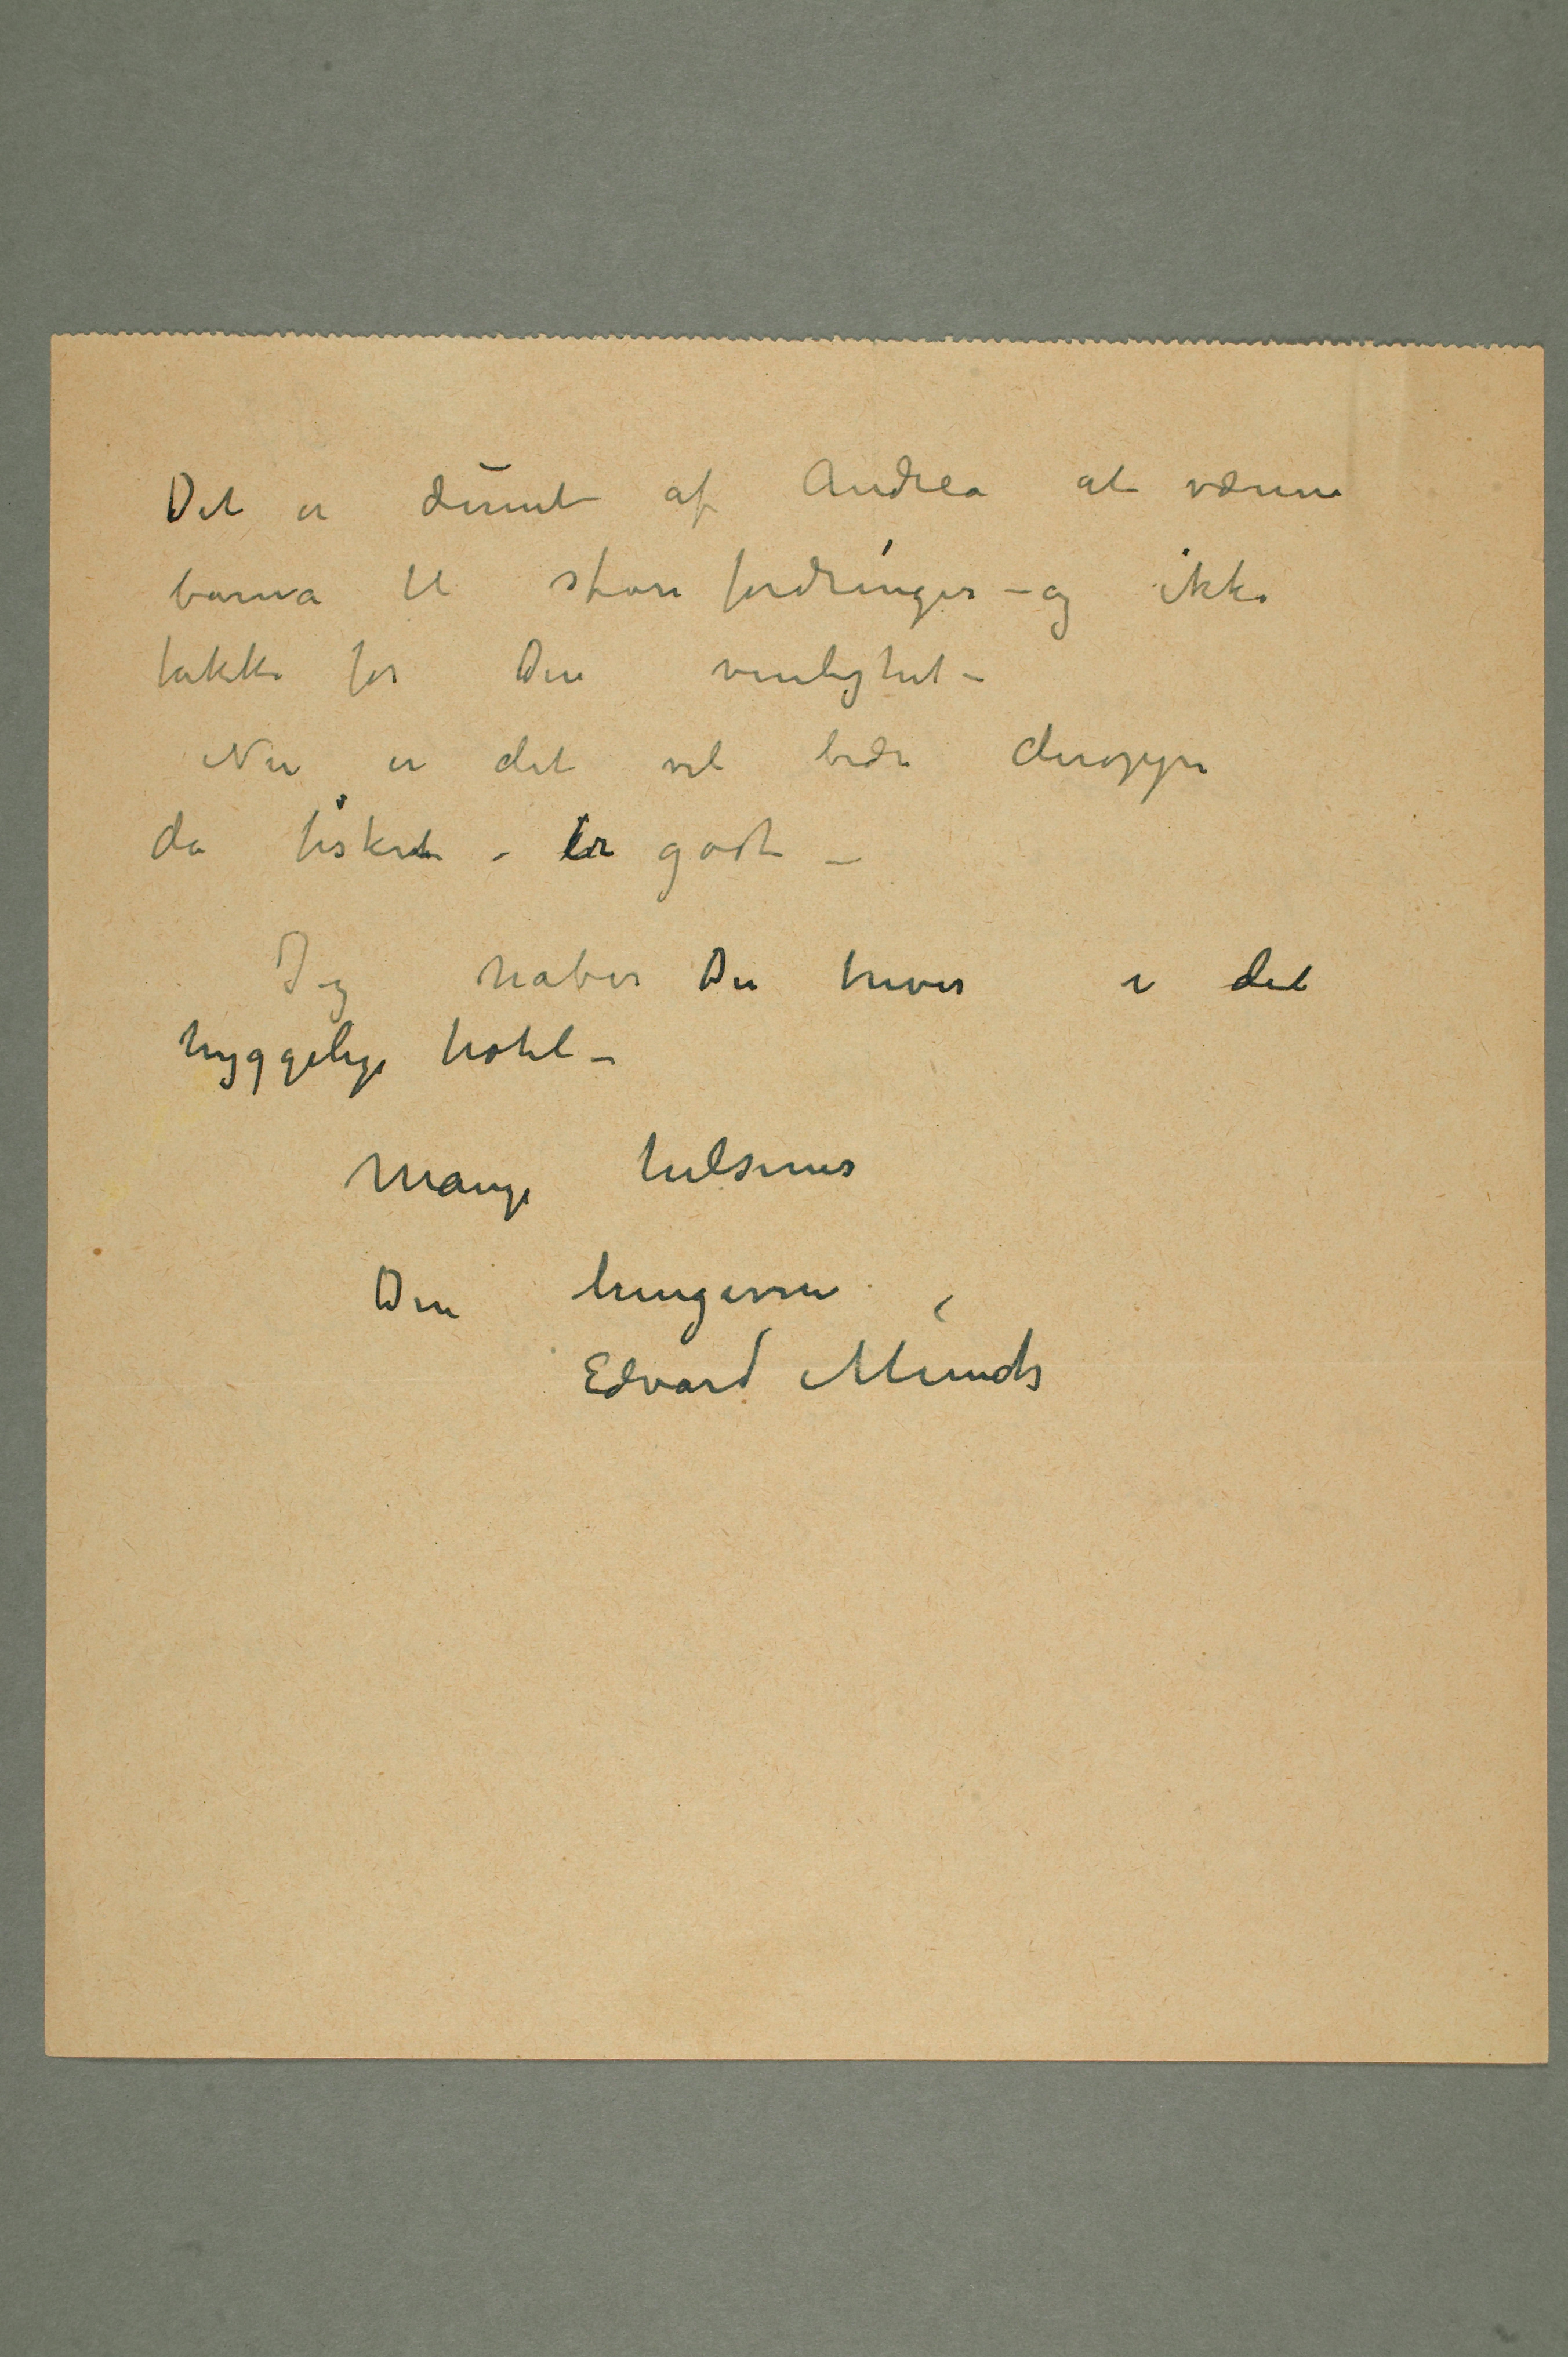 Det er dumt af Andrea at vænne
barna til store fordringer – og ikke
takke for Din venlighet –
Nu er det vel bedre deroppe
da fisket – er godt –
Jeg haber Du trives i det
hyggelige hotel –
Mange hilsener
Din hengivne
Edvard Munch